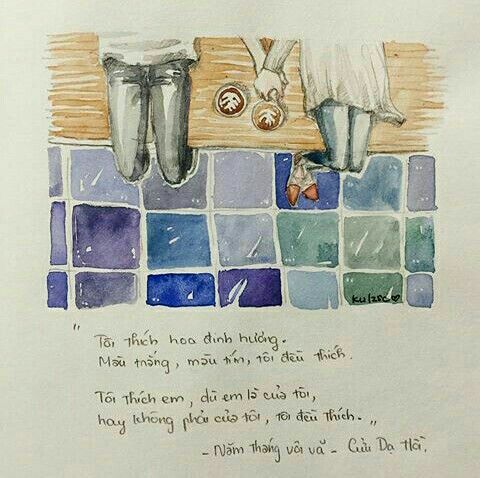 Ku/zoo
"
Tôi thích hoa đinh hương.
Màu trắng, màu tím, tôi đều thích.
Tôi thích em, dù em là của tôi,
hay không phải của tôi, tôi đều thích."
- Năm tháng vội vã - Cửu Dạ Hồi.